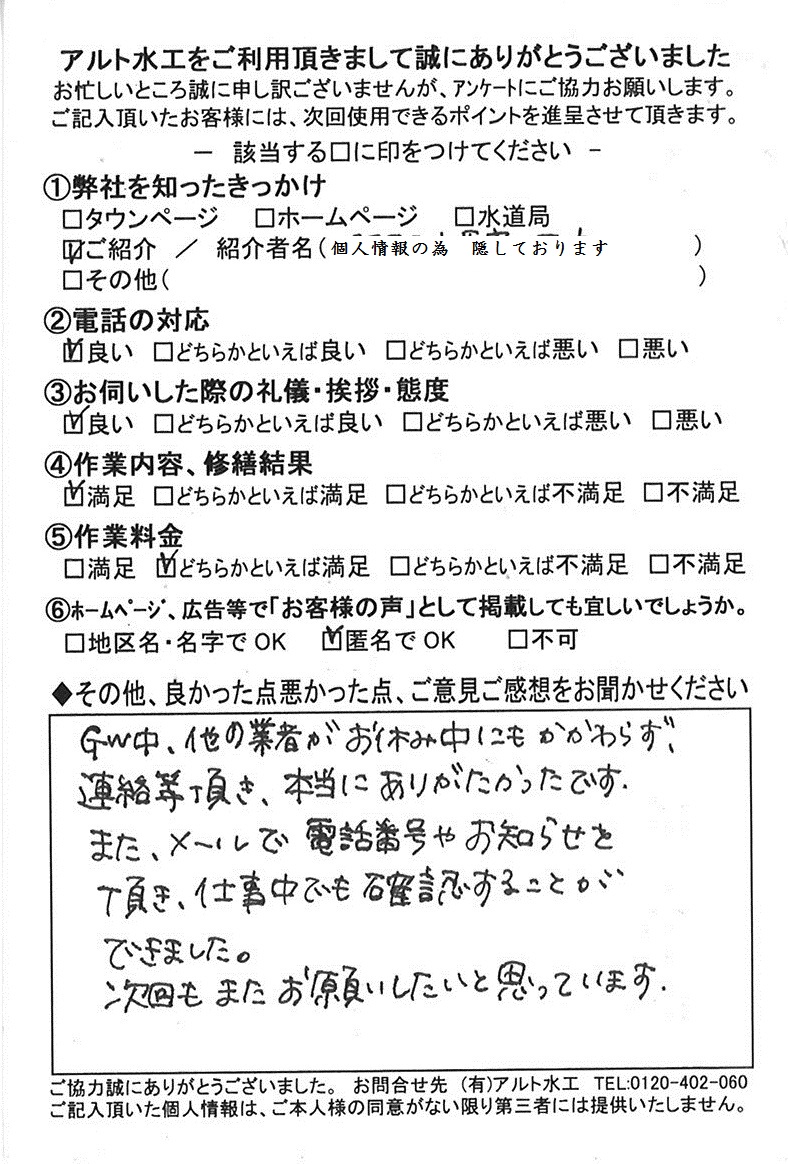 アルト水工をご利用頂きまして誠にありがとうございました
お忙しいところ誠に申し訳ございませんが、アンケートにご協力お願いします。
ご記入頂いたお客様には、次回使用できるポイントを進呈させて頂きます。
－ 該当する□に印をつけてください －
①弊社を知ったきっかけ
□タウンページ □ホームページ □水道局
☑ご紹介 ／ 紹介者名(個人情報の為 隠しております )
□その他( )
②電話の対応
☑良い □どちらかといえば良い □どちらかといえば悪い □悪い
③お伺いした際の礼儀・挨拶・態度
☑良い □どちらかといえば良い □どちらかといえば悪い □悪い
④作業内容、修繕結果
☑満足 □どちらかといえば満足 □どちらかといえば不満足 □不満足
⑤作業料金
□満足 ☑どちらかといえば満足 □どちらかといえば不満足 □不満足
⑥ホームページ、広告等で「お客様の声」として掲載しても宜しいでしょうか。
□地区名・名字でOK ☑匿名でOK □不可
◆その他、良かった点悪かった点、ご意見ご感想をお聞かせください
GW中、他の業者がお休み中にもかかわらず、
連絡等頂き、本当にありがたかったです.
また、メールで電話番号やお知らせを
頂き、仕事中でも確認することが
できました。
次回もまたお願いしたいと思っています.
ご協力誠にありがとうございました。 お問合せ先 (有)アルト水工 TEL:0120-402-060
ご記入頂いた個人情報は、ご本人様の同意がない限り第三者には提供いたしません。